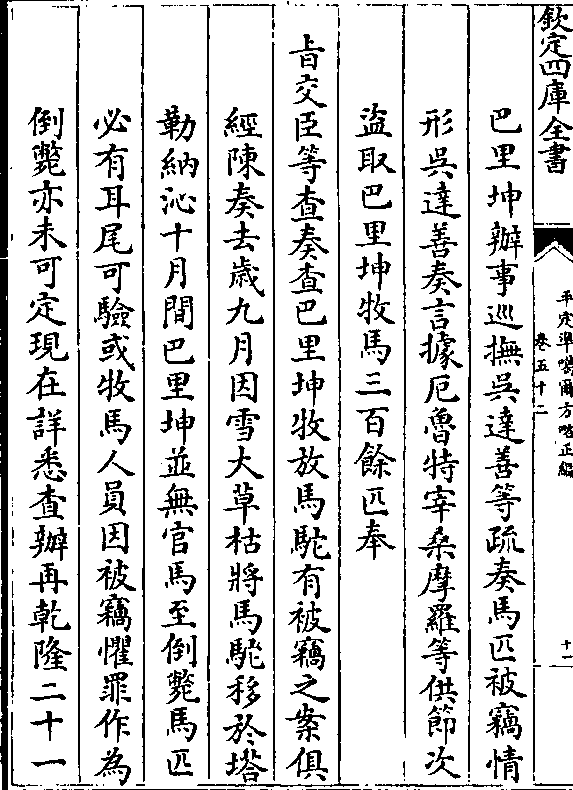 欽定四庫全書
平定準噶爾方略正編
卷五十二
十一
巴里坤辦事巡撫吳達善等疏奏馬匹被竊情
形吳達善奏言據厄魯特宰桑摩羅等供節次
盜取巴里坤牧馬三百餘匹奉
旨交臣等查奏查巴里坤牧放馬駝有被竊之案俱
經陳奏去歲九月因雪大草枯將馬駝移於塔
勒納沁十月間巴里坤並無官馬至倒斃馬匹
必有耳尾可驗或牧馬人員因被竊懼罪作為
倒斃亦未可定現在詳悉查辦再乾隆二十一